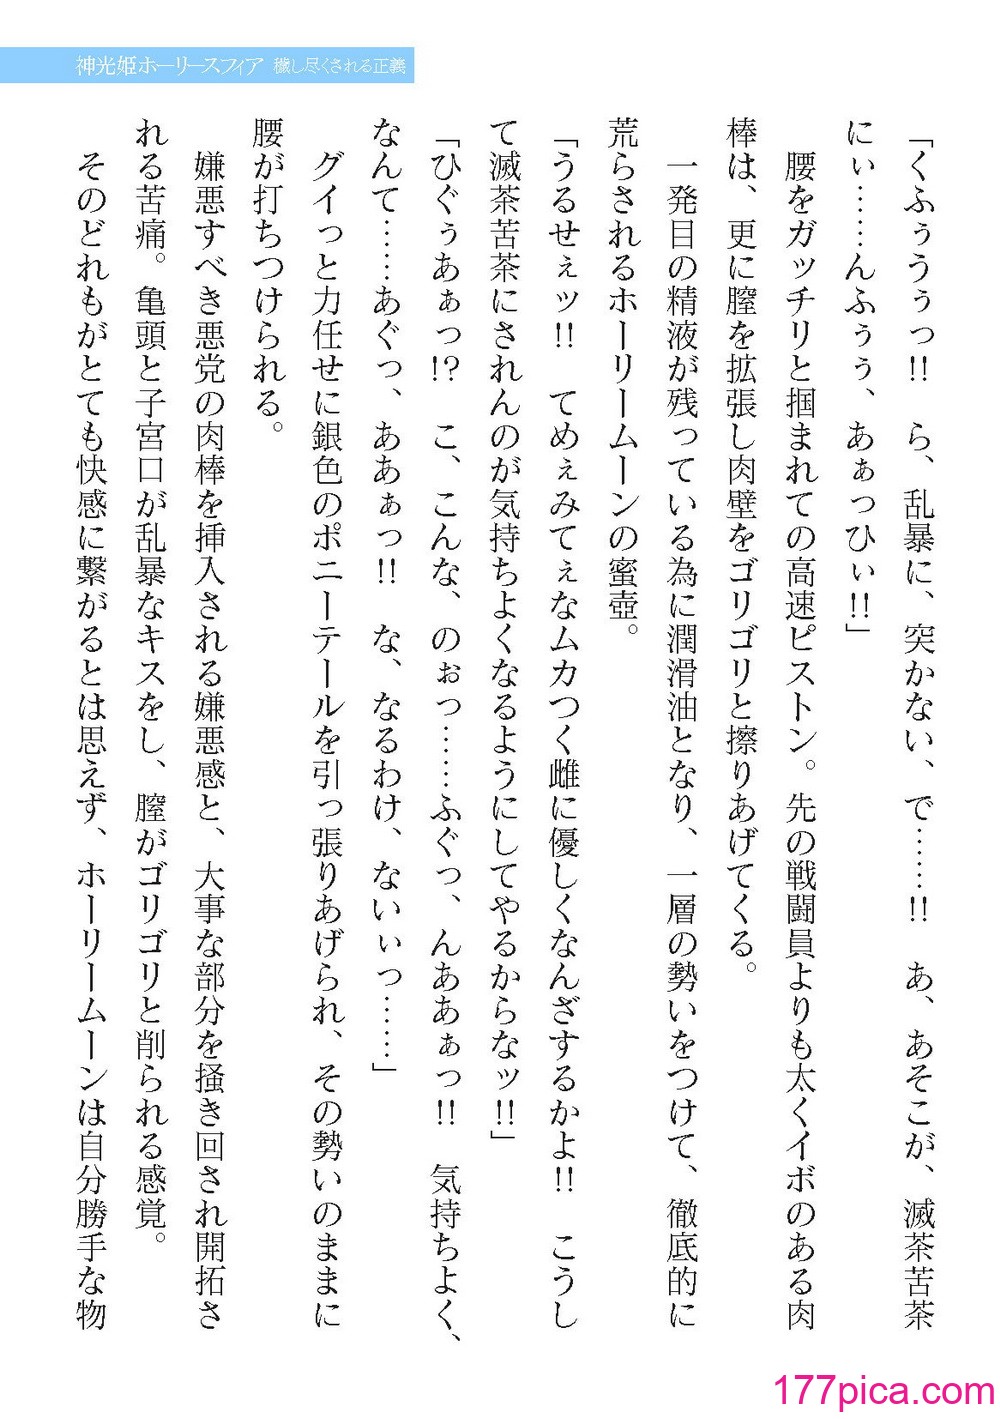 神光姫ホーリースフィア 穢し尽くされる正義
「くふぅうぅっ!! ら、乱暴に、突かない、で……!! あ、あそこが、滅茶苦茶
にぃ……んふぅぅ、あぁっひぃ!!」
腰をガッチリと掴まれての高速ピストン。先の戦闘員よりも太くイボのある肉
棒は、更に膣を拡張し肉壁をゴリゴリと擦りあげてくる。
一発目の精液が残っている為に潤滑油となり、一層の勢いをつけて、徹底的に
荒らされるホーリームーンの蜜壺。
「うるせぇッ!! てめぇみてぇなムカつく雌に優しくなんざするかよ!! こうし
て滅茶苦茶にされんのが気持ちよくなるようにしてやるからなッ!!」
「ひぐぅあぁっ!? こ、こんな、のぉっ……ふぐっ、んああぁっ!! 気持ちよく、
なんて……あぐっ、ああぁっ!! な、なるわけ、ないぃっ……」
グイっと力任せに銀色のポニーテールを引っ張りあげられ、その勢いのままに
腰が打ちつけられる。
嫌悪すべき悪党の肉棒を挿入される嫌悪感と、大事な部分を掻き回され開拓さ
れる苦痛。亀頭と子宮口が乱暴なキスをし、膣がゴリゴリと削られる感覚。
そのどれもがとても快感に繋がるとは思えず、ホーリームーンは自分勝手な物
177pica.com